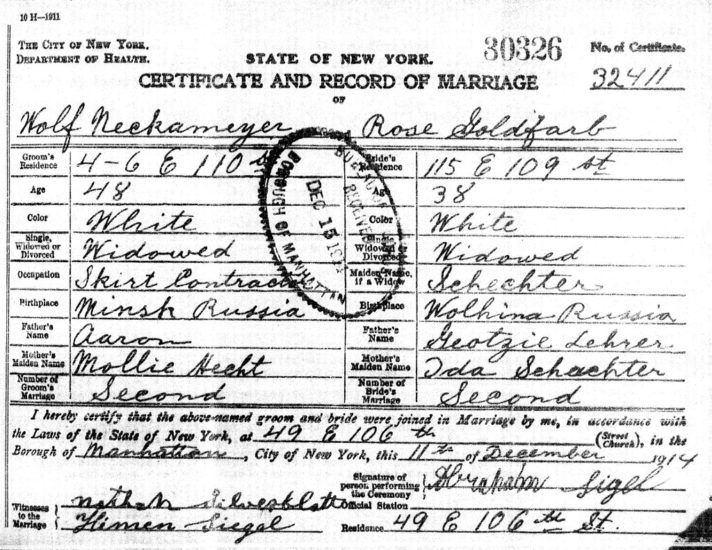 10 H—1911
THE CITY OF NEW YORK.
DEPARTMENT OF HEALTH.
STATE OF NEW YORK.
30326
No. of Certificate.
32411
CERTIFICATE AND RECORD OF MARRIAGE
OF
Wolf Neckameyer Rose Goldfarb
Groom's Residence 4-6 E 110 St Bride's Residence 115 E 109 st
Age 48 Age 38
Color White Color White
Single, Widowed or Divorced Widowed Single Widowed or Divorced Widowed
Occupation Skirt Contractor Maiden Name, if a Widow Schechter
Birthplace Minsk Russia Birthplace Wolhina Russia
Father's Name Aaron Father's Name Geotzie Lehrer
Mother's Maiden Name Mollie Hecht Mother's Maiden Name Ida Schachter
Number of Groom's Marriage Second Number of Bride's Marriage Second
BUREAU OF
RECEIVED
DEC 15 191
BOROUGH OF MANHATTAN
I hereby certify that the above-named groom and bride were joined in Marriage by me, in accordance with
the Laws of the State of New York, at 49 E 106 th (Street Church), in the
Borough of Manhattan, City of New York, this 11th of December 1914
Signature of person performing the Ceremony Abraham Sigel
Witnesses to the Marriage Nathan Silverblatt Official Station
Himen Siegal Residence 49 E 106 th St.